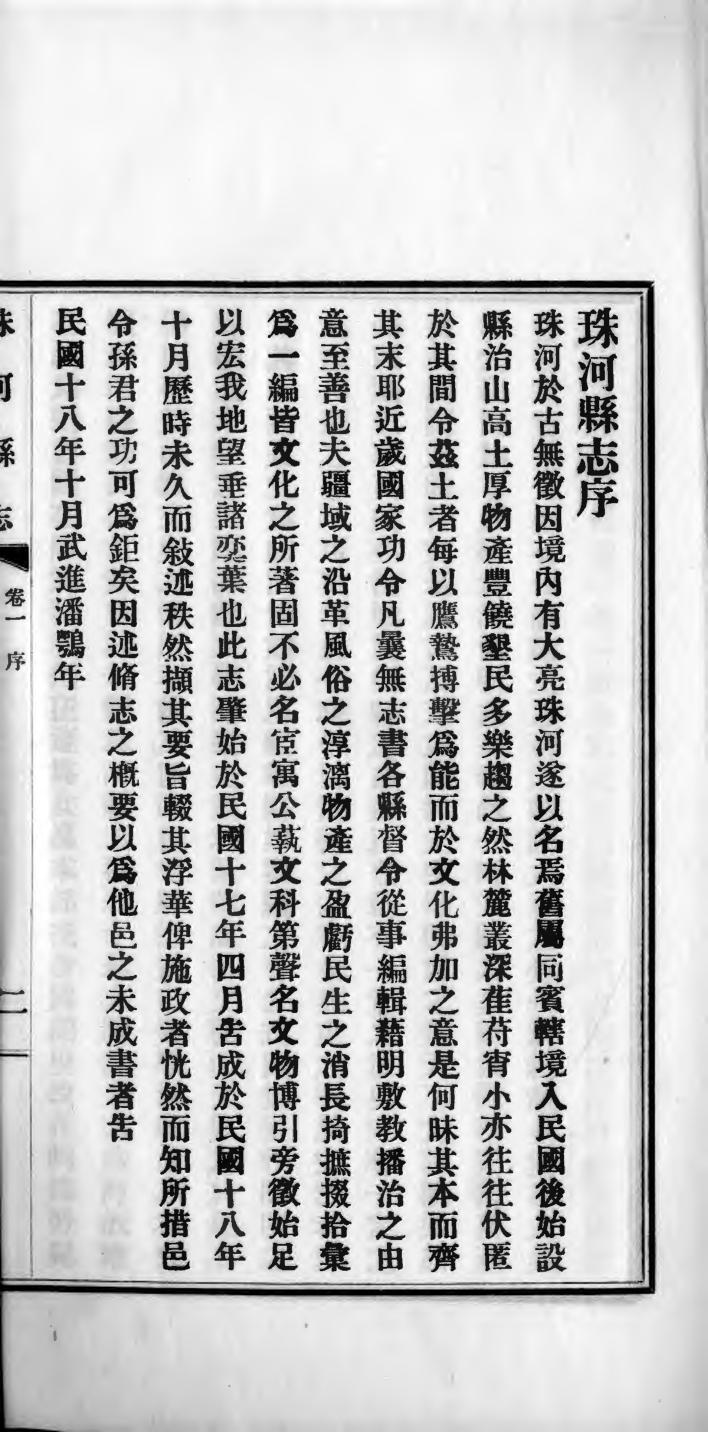 珠河縣志序
珠河於古無徵因境內有大亮珠河遂以名焉舊屬同賓轄境入民國後始設
縣治山高土厚物產豐饒墾民多樂趨之然林麓叢深萑苻宵小亦往往伏匿
於其間令茲土者每以鷹鷙搏擊爲能而於文化弗加之意是何昧其本而齊
其末耶近歲國家功令凡曩無志書各縣督令從事編輯藉明敷教播治之由
意至善也夫疆域之沿革風俗之淳漓物產之盈虧民生之消長掎摭掇拾彙
爲一編皆文化之所著固不必名宦寓公蓺文科第聲名文物博引旁徵始足
以宏我地望垂諸奕葉也此志肇始於民國十七年四月告成於民國十八年
十月歷時未久而敍述秩然擷其要旨輟其浮華俾施政者恍然而知所措邑
令孫君之功可爲鉅矣因述脩志之概要以爲他邑之未成書者告
民國十八年十月武進潘鶚年
珠河縣志
卷一
序
二